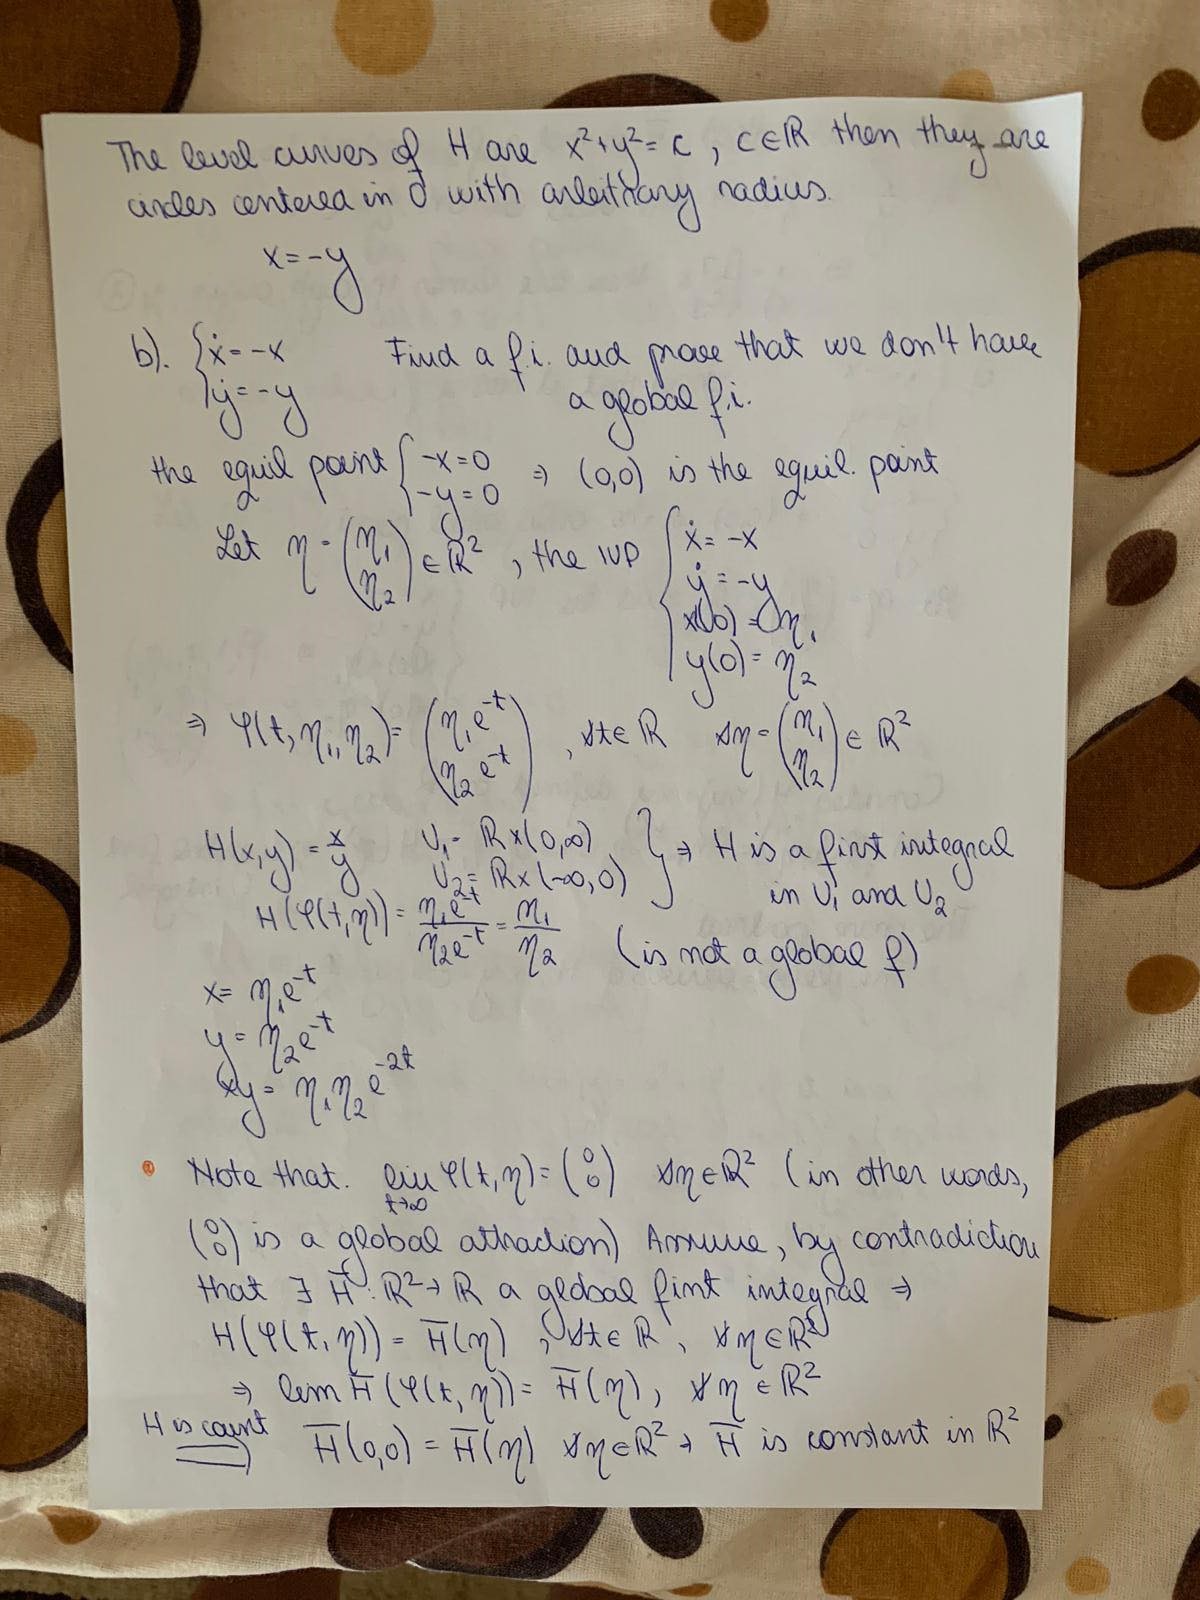 The level curves of H are x²+y²= c , c∈ℝ then they are
circles centered in 0 with arbitrary radius.
x=-y
b). { ẋ=-x Find a f.i. and prove that we don't have
ẏ=-y a global f.i.
the equil point { -x=0 ⇒ (0,0) is the equil. point
-y=0
Let η=(η₁ η₂) ∈ℝ² , the IVP { ẋ= -x
ẏ=-y
x(0)=η₁
y(0)=η₂
⇒ φ(t,η₁,η₂)= (η₁e^-t η₂e^-t) , ∀t∈ℝ ∀η=(η₁ η₂)∈ℝ²
H(x,y)=x/y U₁= ℝ×(0,∞) } ⇒ H is a first integral
U₂= ℝ×(-∞,0) in U₁ and U₂
H(φ(t,η))= η₁e^-t/η₂e^-t = η₁/η₂ (is not a global f)
x= η₁e^-t
y= η₂e^-t
xy= η₁η₂e^-2t
Note that. lim t→∞ φ(t,η)=(0 0) ∀η∈ℝ² (in other words,
(0 0) is a global attraction) Assume, by contradiction
that ∃ H̄:ℝ²→ℝ a global fint integral ⇒
H(φ(t,η))= H̄(η) , ∀t∈ℝ , ∀η∈ℝ²
⇒ lim H̄(φ(t,η))= H̄(η), ∀η∈ℝ²
H is count ⇒ H̄(0,0)= H̄(η) ∀η∈ℝ² → H̄ is constant in ℝ²